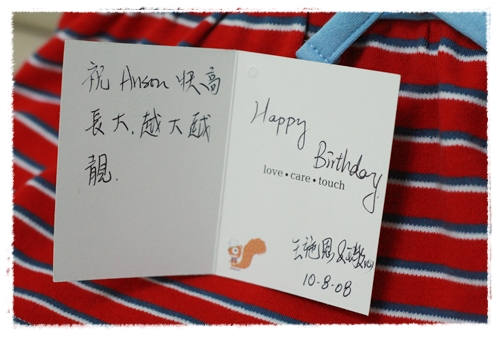 祝 Anson 快高
長大,越大越
靚.
Happy
Birthday
love • care • touch
10-8-08